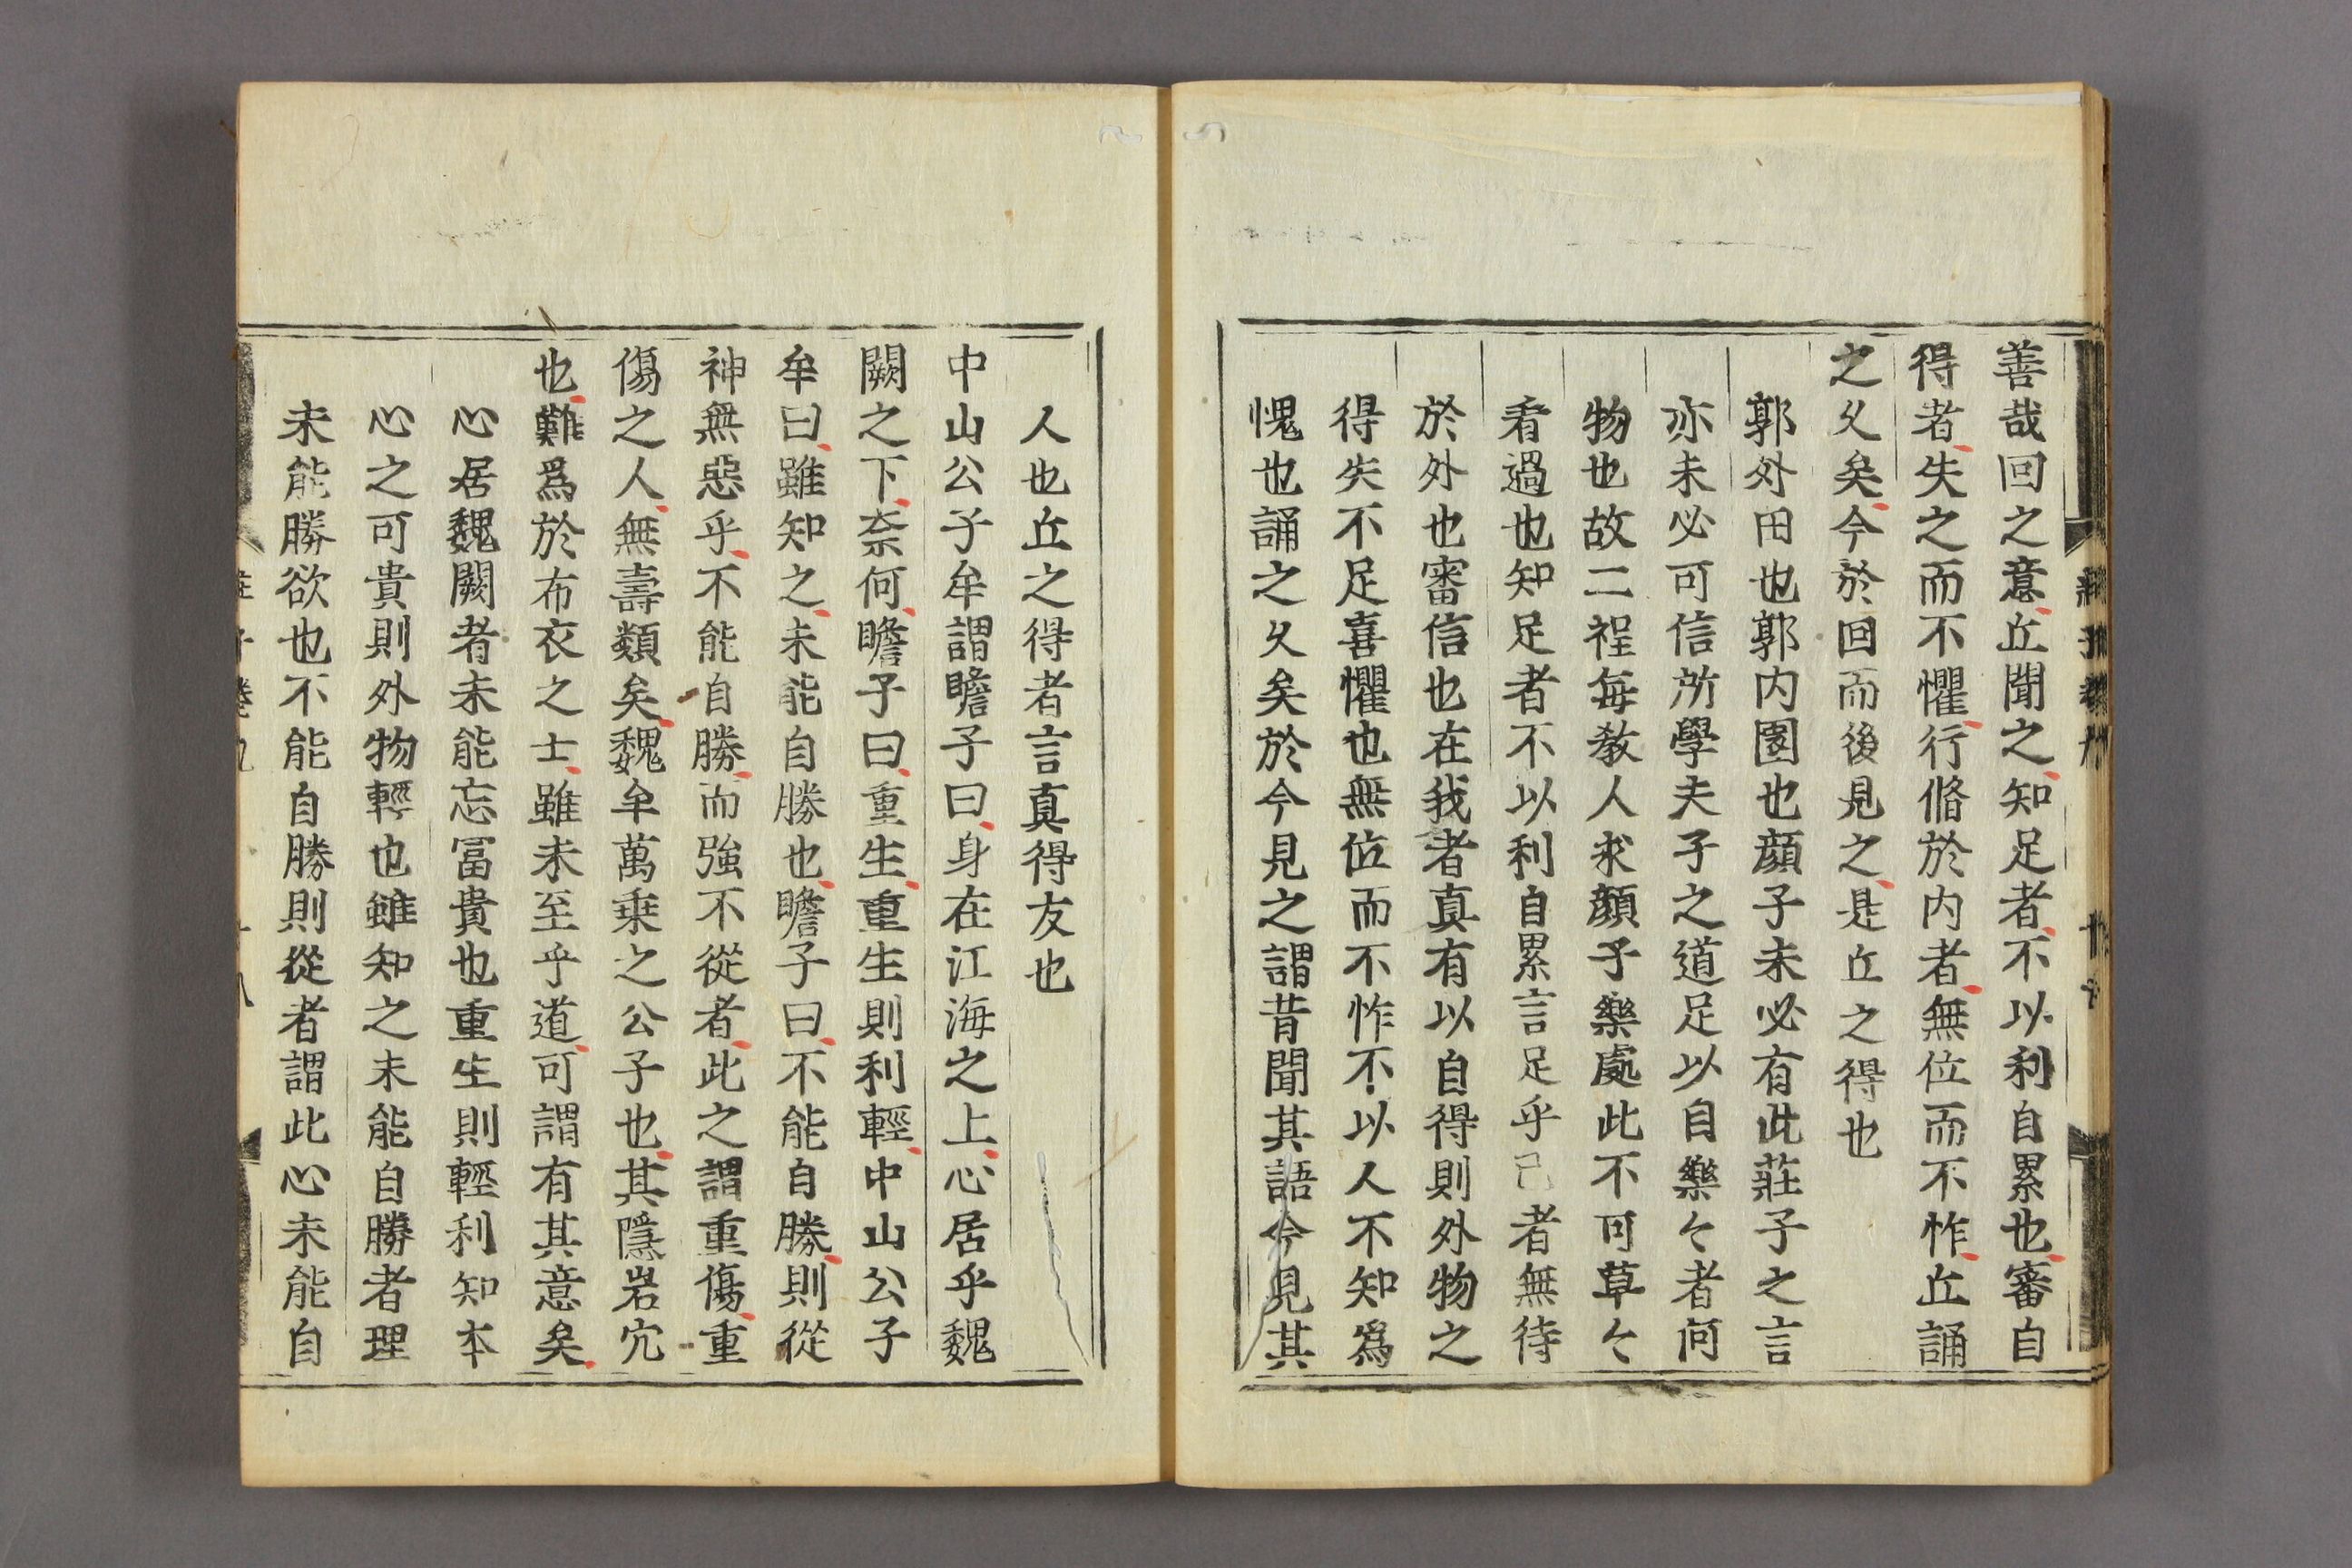 善哉回之意丘聞之知足者不以利自累也審自
得者失之而不懼行脩於内者無位而不怍丘誦
之久矣今於回而後見之是丘之得也
郭外田也郭内園也顔子未必有此莊子之言
亦未必可信所學夫子之道足以自樂〻者何
物也故二程每教人求顔子樂處此不可草〻
看過也知足者不以利自累言足乎己者無待
於外也審信也在我者真有以自得則外物之
得失不足喜懼也無位而不怍不以人不知爲
愧也誦之久矣於今見之謂昔聞其語今見其
人也丘之得者言真得友也
中山公子牟謂瞻子曰身在江海之上心居乎魏
闕之下奈何瞻子曰重生重生則利輕中山公子
牟曰雖知之未能自勝也瞻子曰不能自勝則從
神無惡乎不能自勝而強不從者此之謂重傷重
傷之人無壽類矣魏牟萬乗之公子也其隱岩穴
也難爲於布衣之士雖未至乎道可謂有其意矣
心居魏闕者未能忘冨貴也重生則輕利知本
心之可貴則外物輕也雖知之未能自勝者理
未能勝欲也不能自勝則從者謂此心未能自